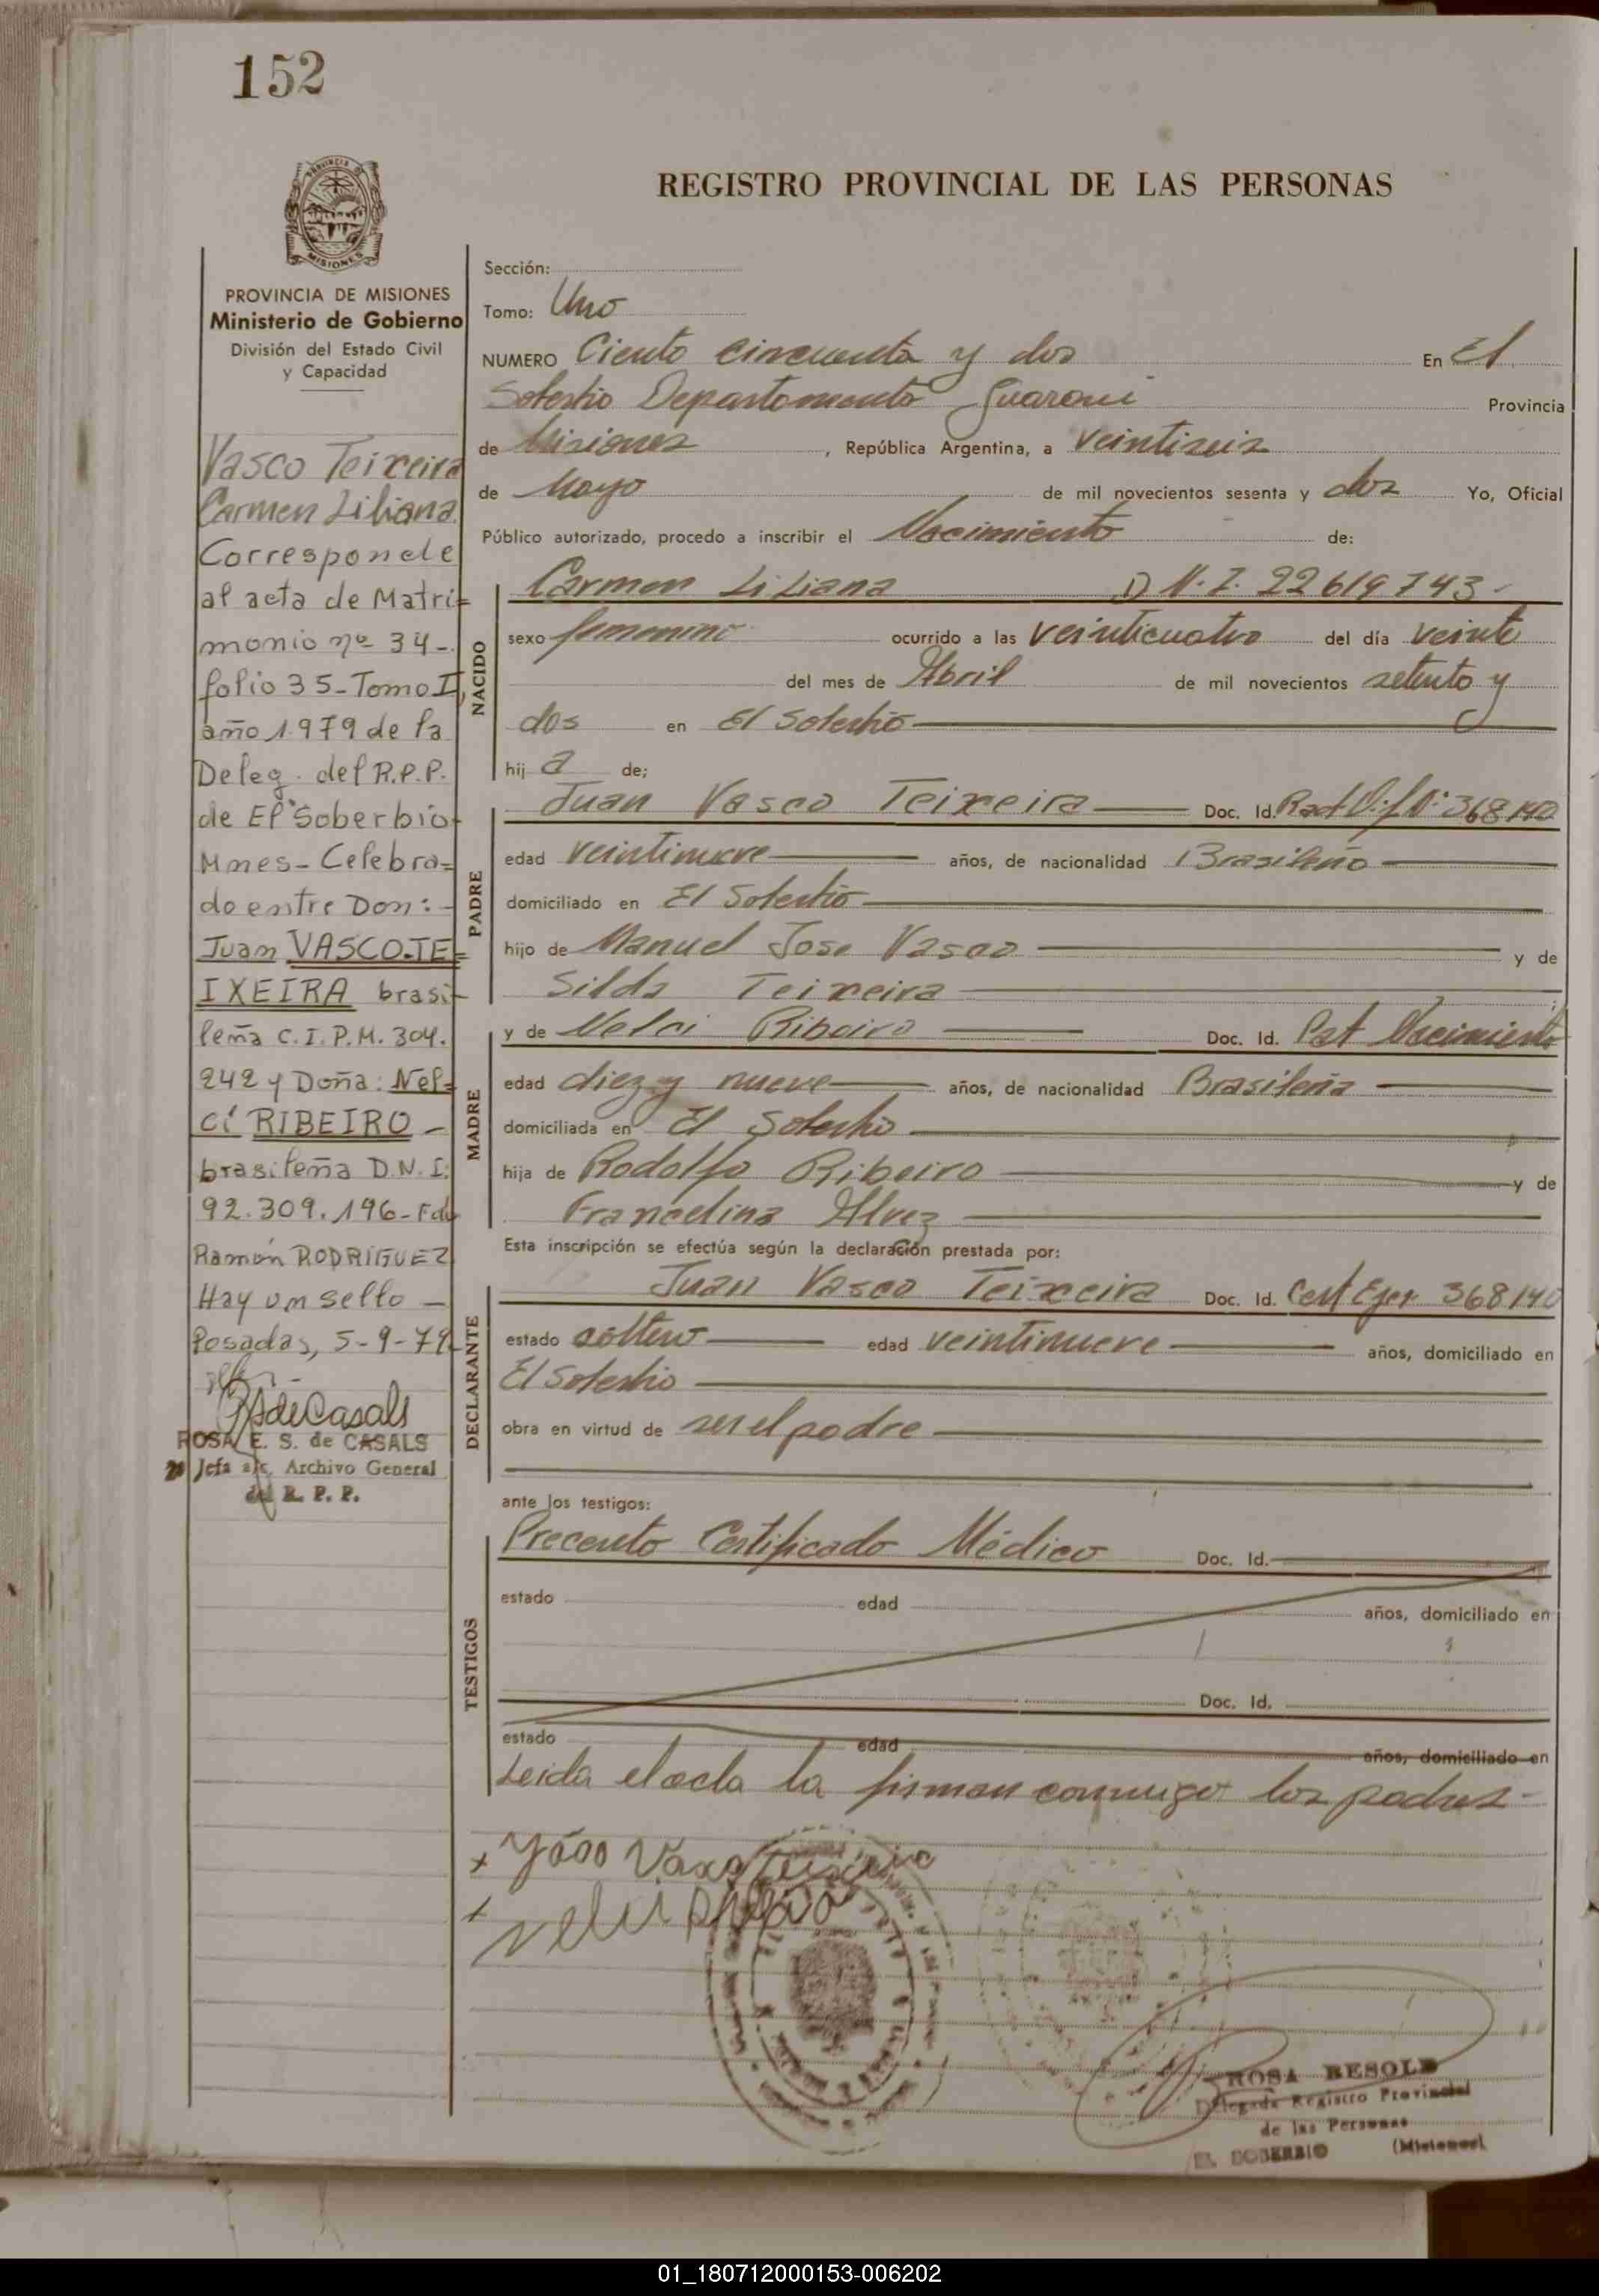 152
PROVINCIA
MISIONES
PROVINCIA DE MISIONES
Ministerio de Gobierno
División del Estado Civil
y Capacidad
Vasco Teixeira
Carmen Liliana.
Corresponde
al acta de Matri=
monio nº 34-
folio 35-Tomo I,
año 1979 de la
Deleg. del R.P.P.
de El Soberbio-
Mnes- Celebra=
do entre Don:-
Juan VASCO-TE=
IXEIRA brasi-
leña C.I.P.M. 304.
242 y Doña: Nel=
ci RIBEIRO -
brasileña D.N.I:
92.309.196-Fdo
Ramón RODRIGUEZ
Hay un sello -
Posadas, 5-9-79-
RSdeCasals
ROSA E. S. de CASALS
Jefa a/c. Archivo General
del R. P. P.
REGISTRO PROVINCIAL DE LAS PERSONAS
Sección:
Tomo: Uno
NUMERO Ciento cincuenta y dos En El
Soberbio Departamento Guarani Provincia
de Misiones, República Argentina, a veintiseis
de Mayo de mil novecientos sesenta y dos Yo, Oficial
Público autorizado, procedo a inscribir el Nacimiento de:
NACIDO
Carmen Liliana D.N.I. 22619743-
sexo femenino ocurrido a las veinticuatro del día veinte
del mes de Abril de mil novecientos setenta y
dos en El Soberbio
hij a de;
PADRE
Juan Vasco Teixeira Doc. Id. 368140
edad veintinueve años, de nacionalidad Brasileño
domiciliado en El Soberbio
hijo de Manuel Jose Vasco y de
Silda Teixeira
MADRE
y de Nelci Ribeiro Doc. Id. Nacimiento
edad diez y nueve años, de nacionalidad Brasileña
domiciliada en El Soberbio
hija de Rodolfo Ribeiro y de
Francelina Alvez
Esta inscripción se efectúa según la declaración prestada por:
DECLARANTE
Juan Vasco Teixeira Doc. Id. Cert 368140
estado soltero edad veintinueve años, domiciliado en
El Soberbio
obra en virtud de ser el padre
ante los testigos:
TESTIGOS
Precento Certificado Médico Doc. Id.
estado edad años, domiciliado en
Doc. Id.
estado edad años, domiciliado en
Leida el acta la firman conmigo los padres-
x João Vasco Teixeira
x Nelci Ribeiro
ROSA BESOLD
Delegada Registro Provincial
de las Personas
EL SOBERBIO (Misiones)
01_180712000153-006202